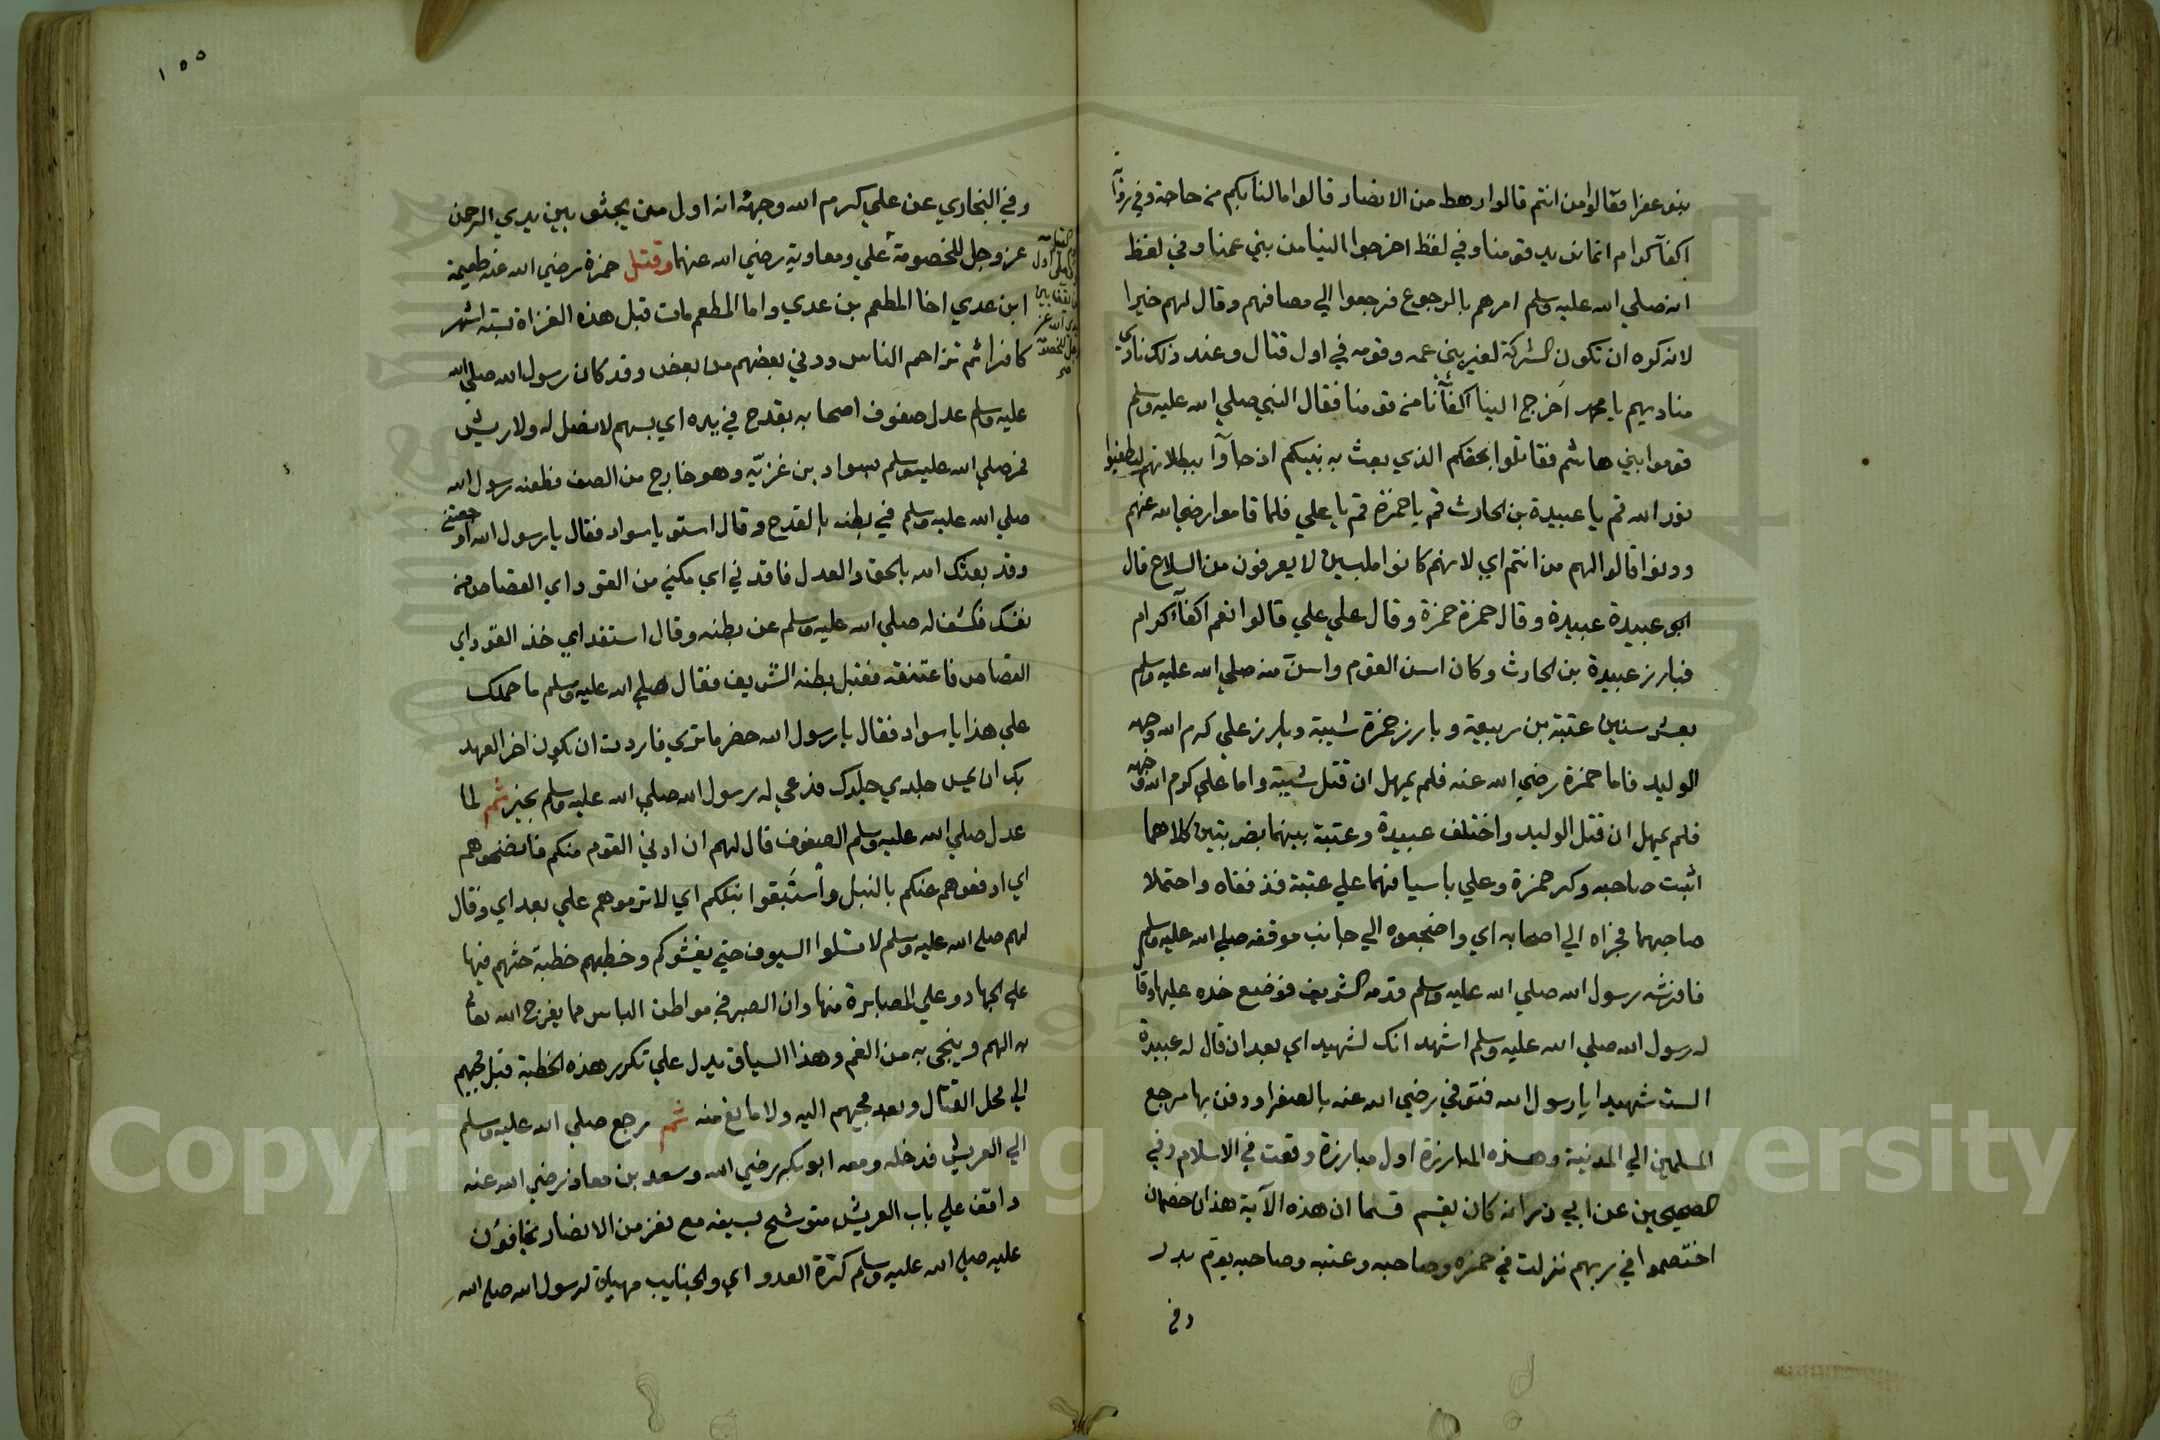 بنو عفرا فقالوا من انتم قالوا رهط من الانصار قالوا مالنا بكم من حاجة وفي رواية
اكفآ كرام انما نريد قومنا وفي لفظ اخرجوا الينا من بني عمنا وفي لفظ
انه صلي الله عليه وسلم امرهم بالرجوع فرجعوا الي مصافهم وقال لهم خيرا
لانه كره ان تكون الشركة لغير بني عمه وقومه في اول قتال وعند ذلك نادي
مناديهم يا محمد اخرج الينا اكفآنا من قومنا فقال النبي صلي الله عليه وسلم
قوموا بني هاشم فقاتلوا بحقكم الذي بعث به نبيكم اذ جاوآ ببطلانهم ليطفوا
نور الله قم يا عبيدة بن الحارث قم يا حمزة قم يا علي فلما قاموا رضي الله عنهم
ودنوا قالوا لهم من انتم اي لانهم كانوا ملبسين لا يعرفون من السلاح قال
ابو عبيدة عبيدة وقال حمزة حمزة وقال علي علي قالوا نعم اكفآ كرام
فبارز عبيدة بن الحارث وكان اسن القوم واسن منه صلي الله عليه وسلم
بعشر سنين عتبة بن ربيعة وبارز حمزة شيبة وبارز علي كرم الله وجهه
الوليد فاما حمزة رضي الله عنه فلم يمهل ان قتل شيبة واما علي كرم الله وجهه
فلم يمهل ان قتل الوليد واختلف عبيدة وعتبة بينهما بضربتين كلاهما
اثبت صاحبه وكر حمزة وعلي باسيافهما علي عتبة فذففاه واحتملا
صاحبهما فجزاه الي اصحابه اي واضجعوه الي جانب موقفه صلي الله عليه وسلم
فافرشه رسول الله صلي الله عليه وسلم قدمه الشريف فوضع خده عليها وقا
له رسول الله صلي الله عليه وسلم اشهد انك لشهيد اي بعد ان قال له عبيدة
الست شهيدا يا رسول الله فتوفي رضي الله عنه بالصفرا ودفن بها مرجع
المسلمين الي المدينة وهذه المبارزة اول مبارزة وقعت في الاسلام وفي
الصحيحين عن ابي ذر انه كان يقسم قسما ان هذه الآية هذان خصمان
اختصموا في ربهم نزلت في حمزه وصاحبه وعتبه وصاحبه يوم بدر
وفي
١٥٥
وفي البخاري عن علي كرم الله وجهه انه اول من يجثو بين يدي الرحمن
عز وجل للخصومة علي ومعاوية رضي الله عنهما وقتل حمزة رضي الله عنه طعيمة
ابن عدي اخا المطعم بن عدي واما المطعم مات قبل هذه الغزاة بستة اشهر
كافرا ثم تزاحم الناس ودني بعضهم من بعض وقد كان رسول الله صلي الله
عليه وسلم عدل صفوف اصحابه بقدح في يده اي بسهم لا نصل له ولا ريش
فمر صلي الله عليه وسلم بسواد بن غزية وهو خارج من الصف فطعنه رسول الله
صلي الله عليه وسلم في بطنه بالقدح وقال استو يا سواد فقال يا رسول الله اوجعتني
وقد بعثك الله بالحق والعدل فاقدني اي مكني من القود اي القصاص من
نفسك فكشف له صلي الله عليه وسلم عن بطنه وقال استقد اي خذ القود اي
القصاص فاعتنقه فقبل بطنه الشريف فقال صلي الله عليه وسلم ما حملك
علي هذا يا سواد فقال يا رسول الله حضر ما تري فاردت ان يكون اخر العهد
بك ان يمس جلدي جلدك فدعي له رسول الله صلي الله عليه وسلم بخير ثم لما
عدل صلي الله عليه وسلم الصفوف قال لهم ان ادني القوم منكم فانضحوهم
اي ادفعوهم عنكم بالنبل واستبقوا نبلكم اي لا ترموهم علي بعد اي وقال
لهم صلي الله عليه وسلم لا تسلوا السيوف حتي يغشوكم وخطبهم خطبة حثهم فيها
علي الجهاد وعلي المصابرة منها وان الصبر في مواطن الباس مما يفرج الله تعالي
به الهم وينجي به من الغم وهذا السياق يدل علي تكرر هذه الخطبة قبل مجيهم
الي محل القتال وبعد مجيهم اليه ولا مانع منه ثم رجع صلي الله عليه وسلم
الي العريش فدخله ومعه ابو بكر رضي الله وسعد بن معاذ رضي الله عنه
واقف علي باب العريش متوشح بسيفه مع نفر من الانصار يخافون
عليه صلي الله عليه وسلم كثرة العدو اي والجنايب مهيان لرسول الله صلي الله
Copyright © King Saud University